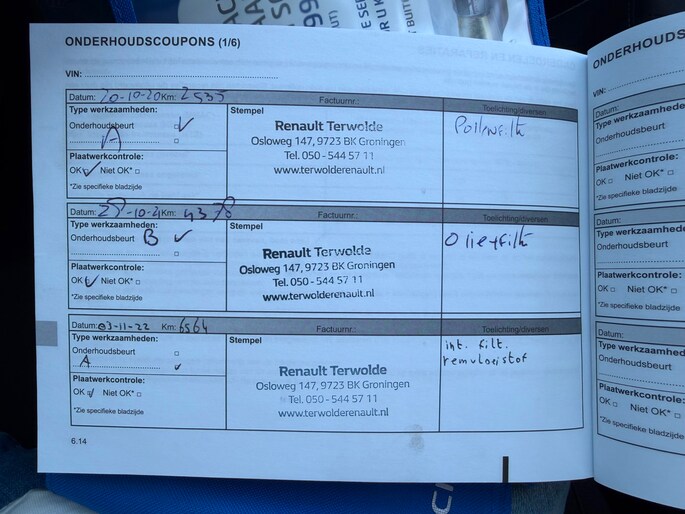 ONDERHOUDSCOUPONS (1/6)
VIN:
Datum: 20-10-20 Km: 2535 Factuurnr.: Toelichting/diversen
Type werkzaamheden:
Onderhoudsbeurt
A
Plaatwerkcontrole:
OK Niet OK*
*Zie specifieke bladzijde
Stempel
Renault Terwolde
Osloweg 147, 9723 BK Groningen
Tel. 050 - 544 57 11
www.terwolderenault.nl
Pollenfilt
Datum: 28-10-21 Km: 4378 Factuurnr.: Toelichting/diversen
Type werkzaamheden:
Onderhoudsbeurt B
Plaatwerkcontrole:
OK Niet OK*
*Zie specifieke bladzijde
Stempel
Renault Terwolde
Osloweg 147, 9723 BK Groningen
Tel. 050 - 544 57 11
www.terwolderenault.nl
Olie+filt
Datum: 03-11-22 Km: 6564 Factuurnr.: Toelichting/diversen
Type werkzaamheden:
Onderhoudsbeurt
A
Plaatwerkcontrole:
OK Niet OK*
*Zie specifieke bladzijde
Stempel
Renault Terwolde
Osloweg 147, 9723 BK Groningen
Tel. 050 - 544 57 11
www.terwolderenault.nl
int. filt.
remvloeistof
6.14
ONDERHOUDS
VIN:
Datum:
Type werkzaamhed
Onderhoudsbeurt
Plaatwerkcontrole:
OK Niet OK*
*Zie specifieke bladzijde
Datum:
Type werkzaamhed
Onderhoudsbeurt
Plaatwerkcontrole:
OK Niet OK*
*Zie specifieke bladzijde
Datum:
Type werkzaamhed
Onderhoudsbeurt
Plaatwerkcontrole:
OK Niet OK*
*Zie specifieke bladzijde